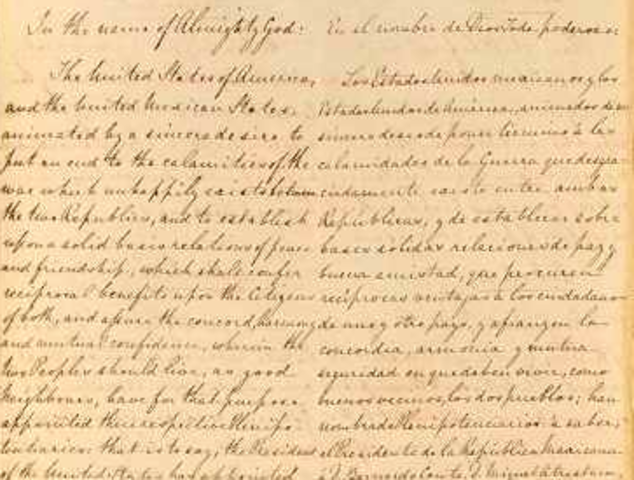 In the name of Almighty God:
The United States of America,
and the United Mexican States,
animated by a sincere desire to
put an end to the calamities of the
war which unhappily exists between
the two Republics, and to establish
upon a solid basis relations of peace
and friendship, which shall confer
reciprocal benefits upon the Citizens
of both, and assure the concord, harmony
and mutual confidence, wherein the
two Peoples should live, as good
Neighbours, have for that purpose
appointed their respective Plenipo-
tentiaries: that is to say, the President
of the United States has appointed
En el nombre de Dios Todo poderoso:
Los Estados Unidos mexicanos y los
Estados Unidos de América, animados de un
sincero deseo de poner término á las
calamidades de la Guerra que desgra-
ciadamente existe entre ambas
Republicas, y de establecer sobre
bases solidas relaciones de paz y
buena amistad, que procuren
reciprocas ventajas á los ciudadanos
de uno y otro pays, y afiancen la
concordia, armonia y mutua
seguridad en que deben vivir, como
buenos vecinos, los dos pueblos; han
nombrado Plenipotenciarios á saber,
el Presidente de la República Mexicana
á D. Bernardo Couto, D. Miguel Atristain,